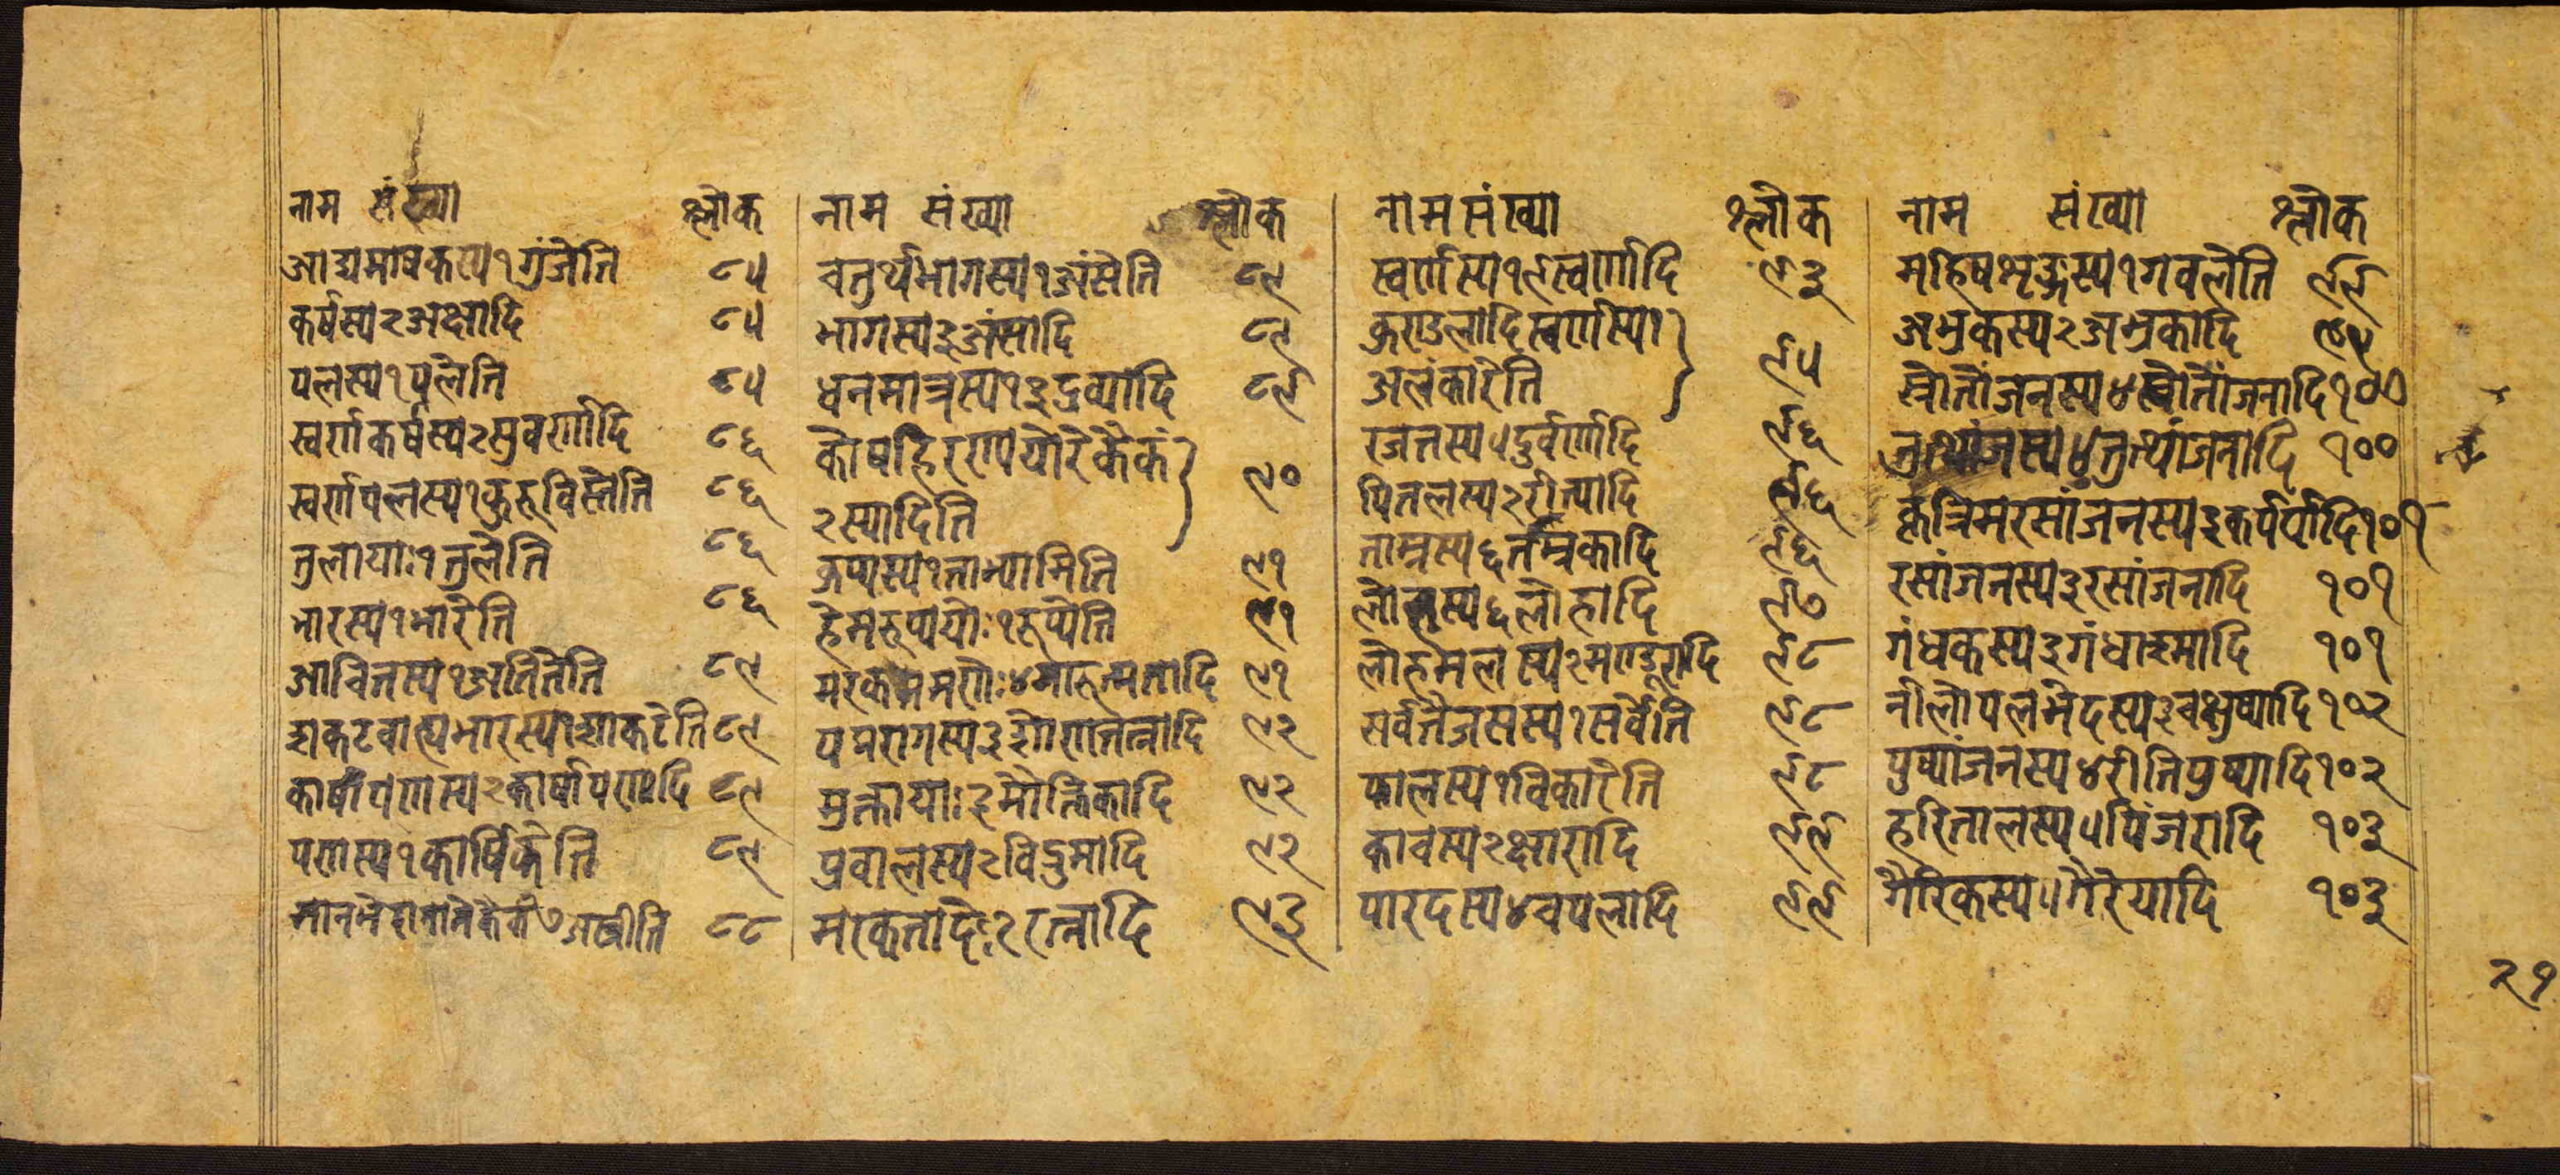 नाम संख्या श्लोक
आद्यमाषकस्य१गुंजेति ८५
कर्षस्य२अक्षादि ८५
पलस्य१पलेति ८५
स्वर्णकर्षस्य२सुवर्णादि ८६
स्वर्णपलस्य१कुरुविस्तेति ८६
तुलायाः१तुलेति ८६
भारस्य१भारेति ८६
आचितस्य१अतितेति ८७
शकटवाह्यभारस्य१शाकटेति ८७
कार्षापणस्य२कार्षापणादि ८७
पणस्य१कार्षिकेति ८७
८८
नाम संख्या श्लोक
चतुर्थभागस्य१अंसेति ८९
भागस्य३अंसादि ८९
धनमात्रस्य१३द्रव्यादि ८९
कोषहिरण्ययोरेकैकं
२स्यादिति ९०
कुप्यस्य१ताभ्यामिति ९१
हेमरूप्ययोः१रूप्येति ९१
मरकतमणेः४गारुत्मतादि ९१
पद्मरागस्य३शोणरत्नादि ९२
मुक्तायाः२मौक्तिकादि ९२
प्रवालस्य२विद्रुमादि ९२
मरकतादेः२रत्नादि ९३
नाम संख्या श्लोक
स्वर्णस्य१९स्वर्णादि ९३
कुण्डलादिस्वर्णस्य१
अलंकारेति ९५
रजतस्य५दुर्वर्णादि ९६
पितलस्य२रीत्यादि ९६
ताम्रस्य६तम्रकादि ९६
लोहस्य६लौहादि ९७
लोहमलस्य२मण्डूरादि ९८
सर्वतैजसस्य१सर्वेति ९८
फालस्य१विकारेति ९८
काचस्य२क्षारादि ९९
पारदस्य४चपलादि ९९
नाम संख्या श्लोक
महिषशृङ्गस्य१गवलेति ९९
अभ्रकस्य२अभ्रकादि
स्रोतांजनस्य४स्रोतांजनादि१००
तुत्थांजस्य४तुत्थांजनादि १००
कृत्रिमरसांजनस्य३कर्पर्यादि१०१
रसांजनस्य३रसांजनादि १०१
गंधकस्य३गंधाश्मादि १०१
नीलोपलभेदस्य३चक्षुष्यादि१०२
पुष्पांजनस्य४रीतिपुष्पादि१०२
हरितालस्य५पिंजरादि १०३
गैरिकस्य॥गैरेयादि १०३
२१